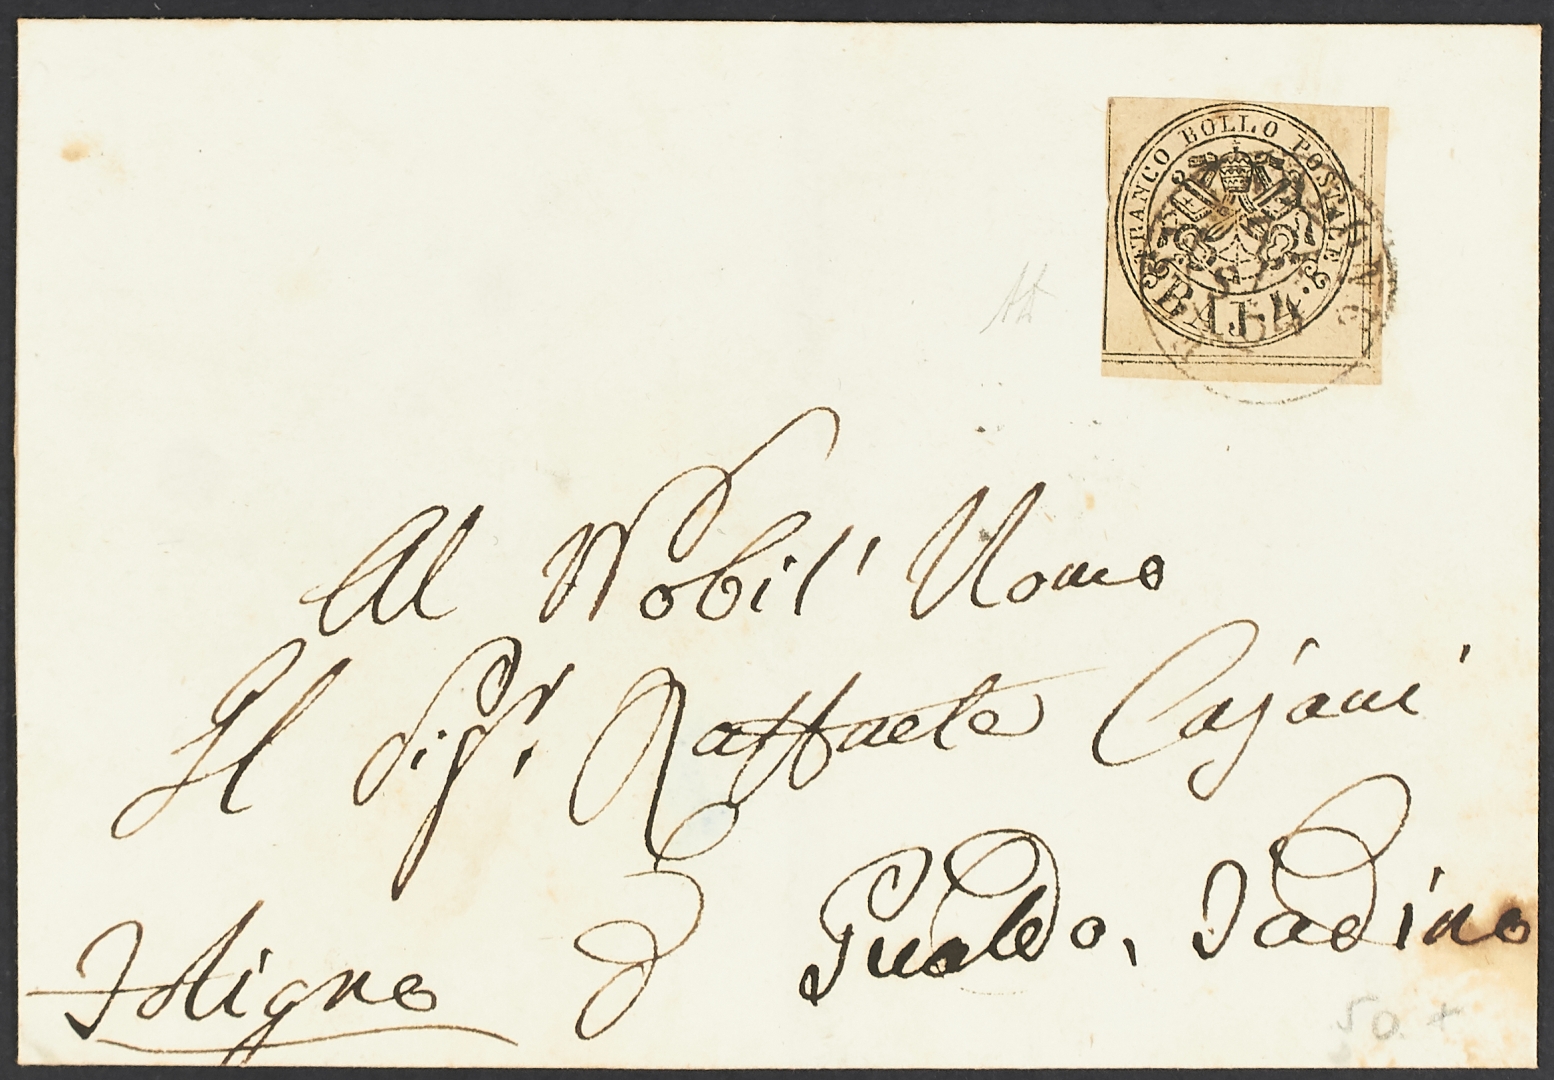 FRANCO BOLLO POSTALE
BAJ 4.
Al Nobil' Uomo
Il Sigr. Raffaele Cajani
Gualdo, Tadino
Foligno
50.+